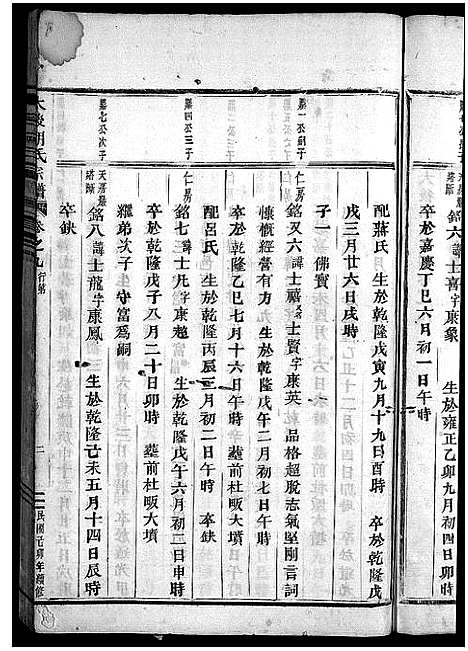 銘六諱士喜字康象 生於雍正乙卯九月初四日卯時
卒於嘉慶丁巳六月初一日午時
配蔣氏 生於乾隆戊寅九月十九日酉時 卒於乾隆戊
戌三月廿六日戌時
子一 佛寶
熙一公嗣子
仁房
銘又六諱士禧又名士賢字康英 品格超脫志氣堅剛言詞
慷慨經營有方 生於乾隆戊午二月初七日午時
卒於乾隆乙巳七月十六日午時 墓前杜畈大墳
配呂氏 生於乾隆丙辰三月初二日午時 卒缺
熙四公三子
仁房
銘七諱士凡字康超 生於乾隆戊午六月初二日申時
卒於乾隆戊子八月二十日卯時 墓前杜畈大墳
繼弟次子守富為嗣
熙七公次子
銘八諱士龍字康鳳 生於乾隆己未五月十四日辰時
卒缺
胡氏宗譜 卷之九 行第
民國己卯年續修